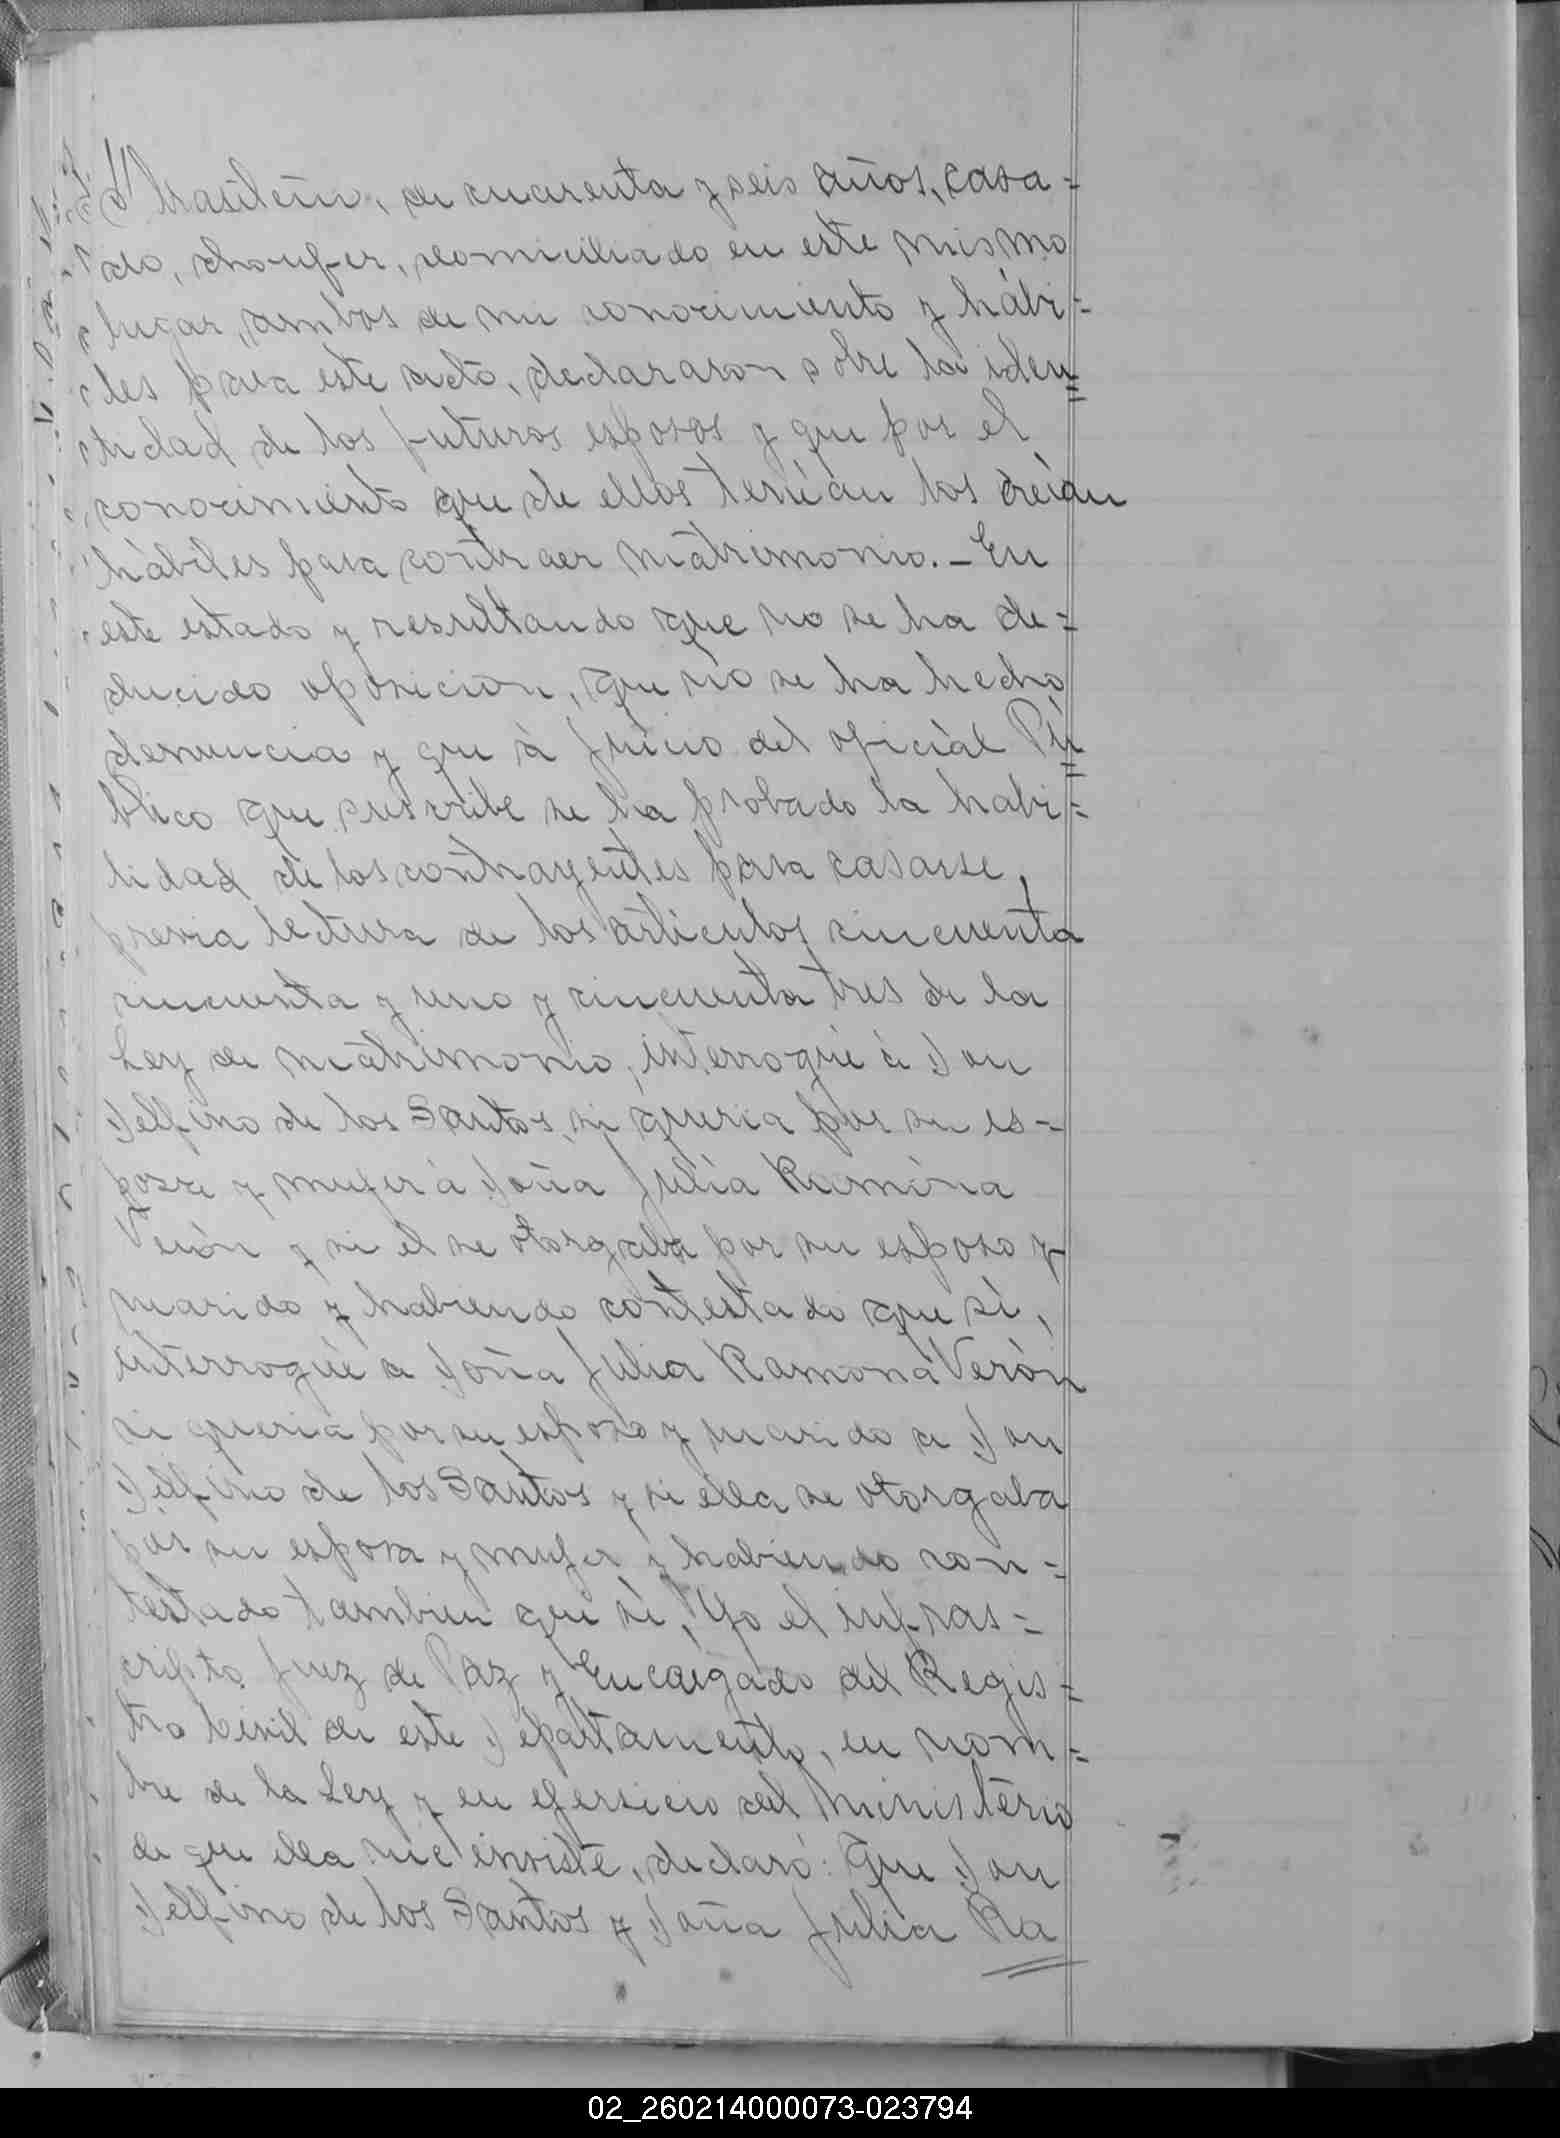 // brasilero, de cuarenta y seis años, casa=
do, choufer, domiciliado en este mismo
lugar, ambos de mi conocimiento y hábi=
les para este acto, declararon sobre la iden=
tidad de los futuros esposos y que por el
conocimiento que de ellos tenían los creían
hábiles para contraer matrimonio.- En
este estado y resultando que no se ha de=
ducido oposicion, que no se ha hecho
denuncia y que à juicio del oficial Pú=
blico que suscribe se ha probado la habi=
lidad de los contrayentes para casarse,
previa lectura de los articulos cincuenta
cincuenta y uno y cincuenta tres de la
Ley de matrimonio, interroguè à Don
Delfino de los Santos, si queria por su es-
posa y mujer à Doña Julia Ramona
Verón y si el se otorgaba por su esposo y
marido y habiendo contestado que sì,
interroguè a Doña Julia Ramona Verón
si queria por su esposo y marido a Don
Delfino de los Santos y si ella se otorgaba
por su esposa y mujer y habiendo con=
testado tambien que sì, Yo el infras=
cripto Juez de Paz y Encargado del Regis=
tro Civil de este Departamento, en nom=
bre de la Ley y en ejersicio del ministerio
de que ella me inviste, declaró: Que Don
Delfino de los Santos y Doña Julia Ra=
02_260214000073-023794